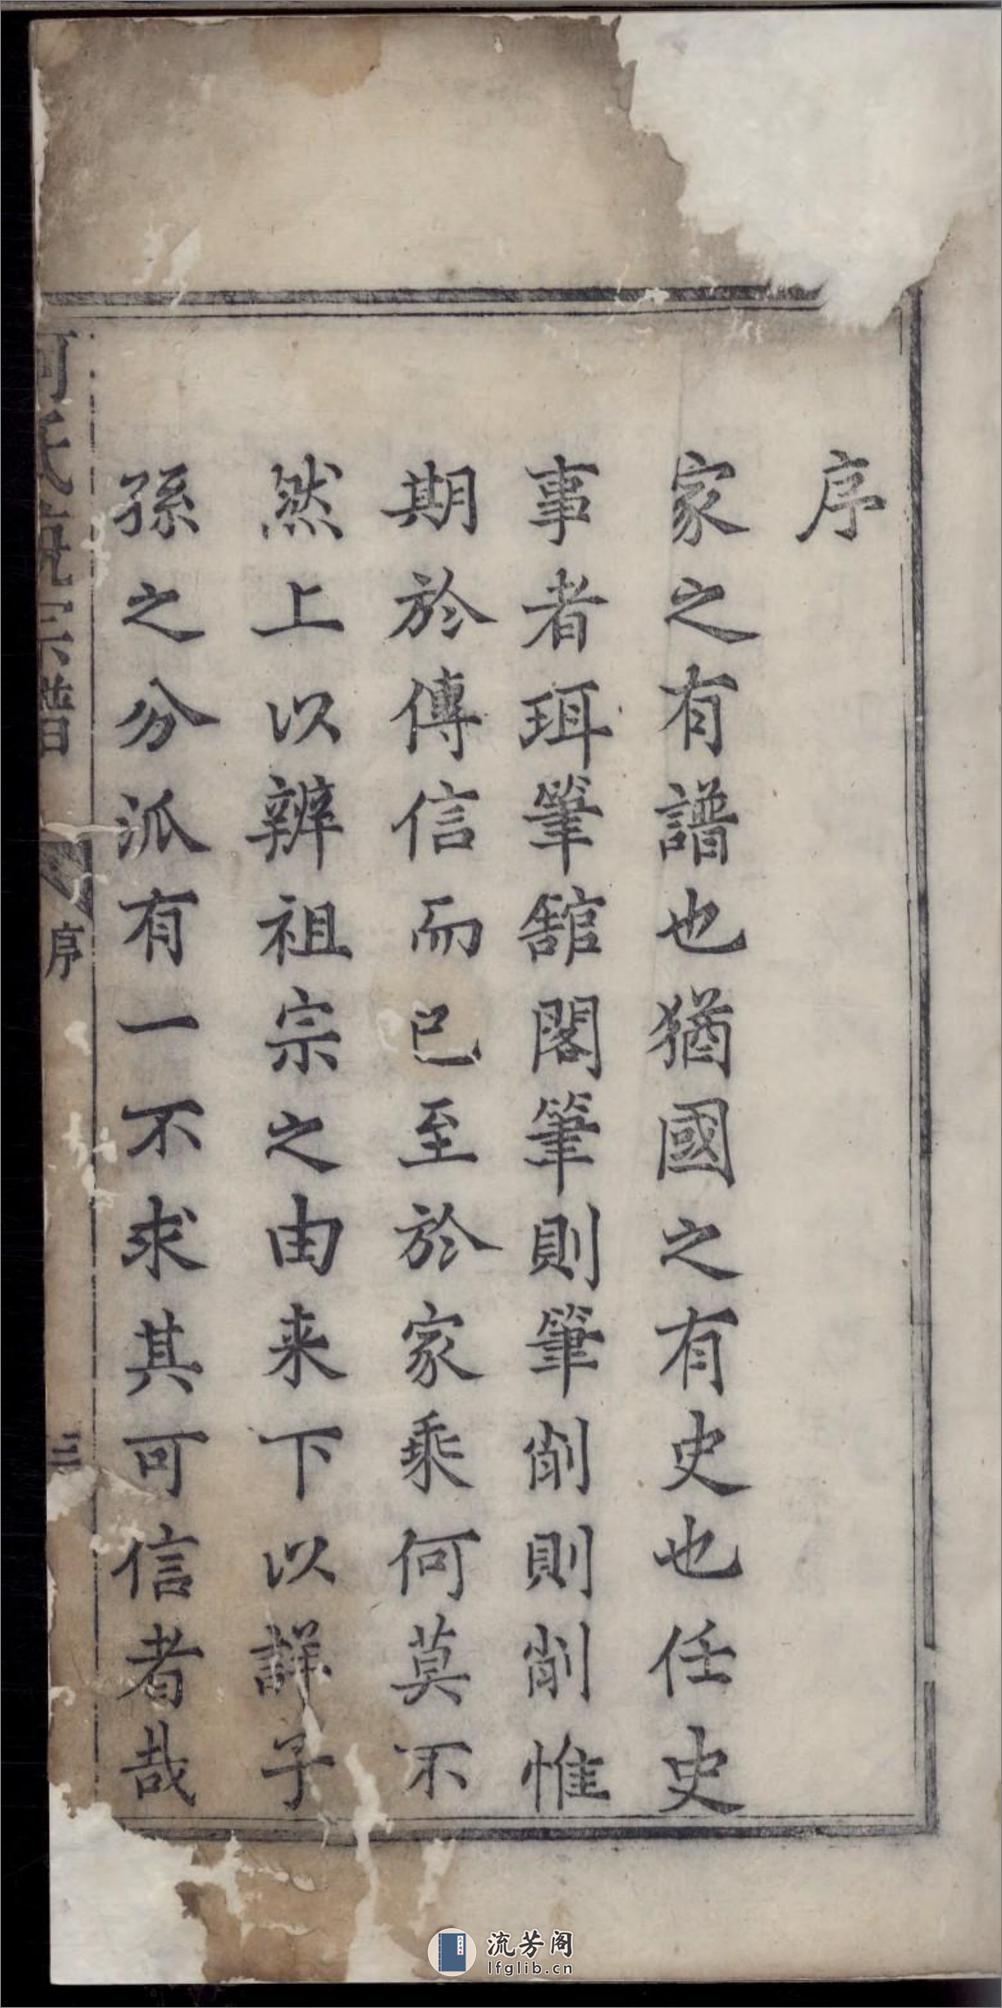 序
家之有譜也猶國之有史也任史
事者珥筆館閣筆則筆削則削惟
期於傳信而已至於家乘何莫不
然上以辨祖宗之由来下以詳子
孫之分派有一不求其可信者哉
氏宗譜
序
二
流芳阁
lfglib.cn